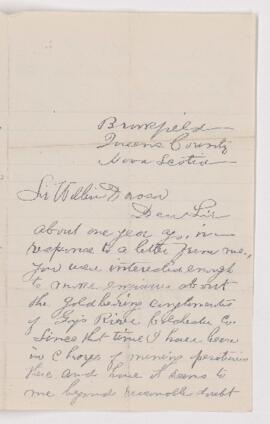 Brookfield
Queens County
Nova Scotia
Sir William Dawson
Dear Sir
about one year ago, in
response to a letter from me,
you were interested enough
to make enquiries about
the gold bearing conglomerates
of Gays River Colchester Co.
Since that time I have been
in charge of mining operations
there and have it seems to
me beyond reasonable doubt